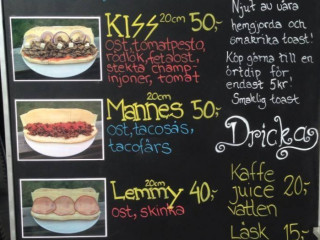 KISS 20cm 50,-
ost, tomatpesto,
rödlök, fetaost,
stekta champ-
injoner, tomat
Mannes 20cm 50,-
ost, tacosås,
tacofärs
Lemmy 20cm 40,-
ost, skinka
Njut av våra
hemgjorda och
smakrika toast!
Köp gärna till en
örtdip för
endast 5kr!
Smaklig toast
Dricka
Kaffe
juice 20,-
vatten
Läsk 15,-